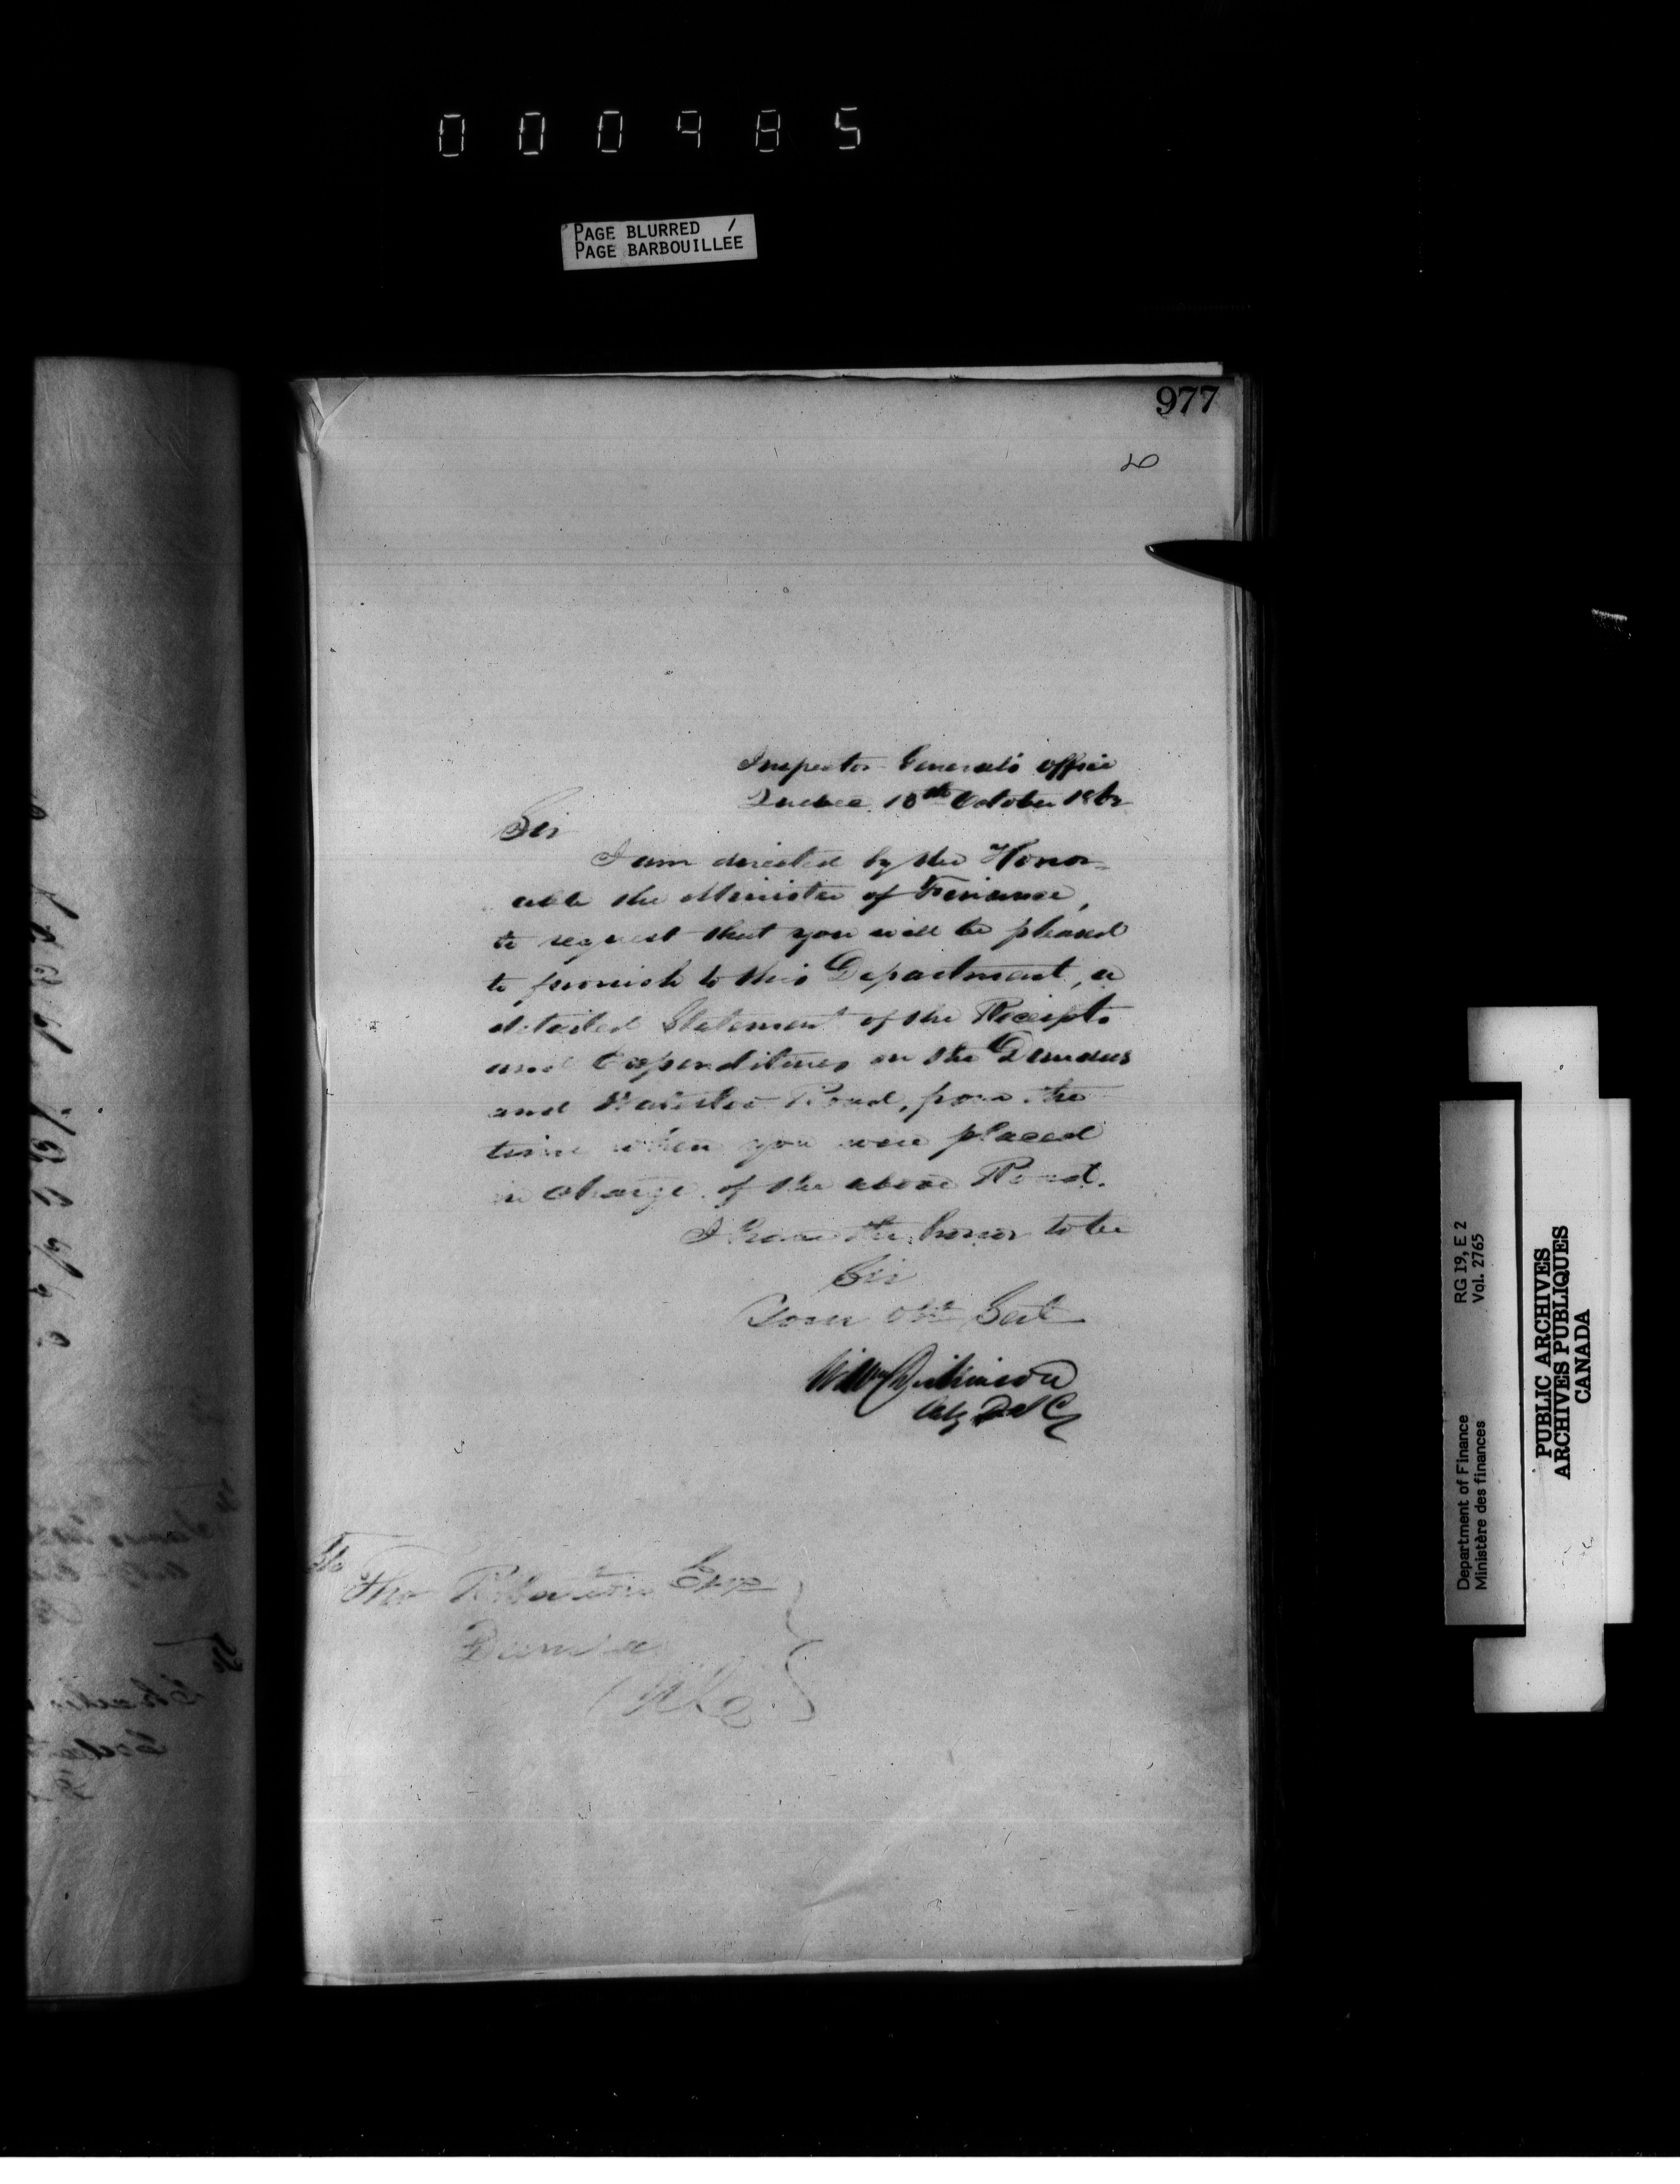 000985
PAGE BLURRED /
PAGE BARBOUILLEE
977
Inspector General's office
Quebec 18th October 1862
Sir
I am directed by the Honor-
able the Minister of Finance,
to request that you will be pleased
to furnish to this Department, a
detailed Statement of the Receipts
and Expenditures on the Dundas
and Waterloo Road, from the
time when you were placed
in charge of the above Road.
I have the honor to be
Sir
Your Obt Sert
Willm Dickinson
Thos Robertson Esqr
Dundas
RG 19, E 2
Vol. 2765
Department of Finance
Ministère des finances
PUBLIC ARCHIVES
ARCHIVES PUBLIQUES
CANADA